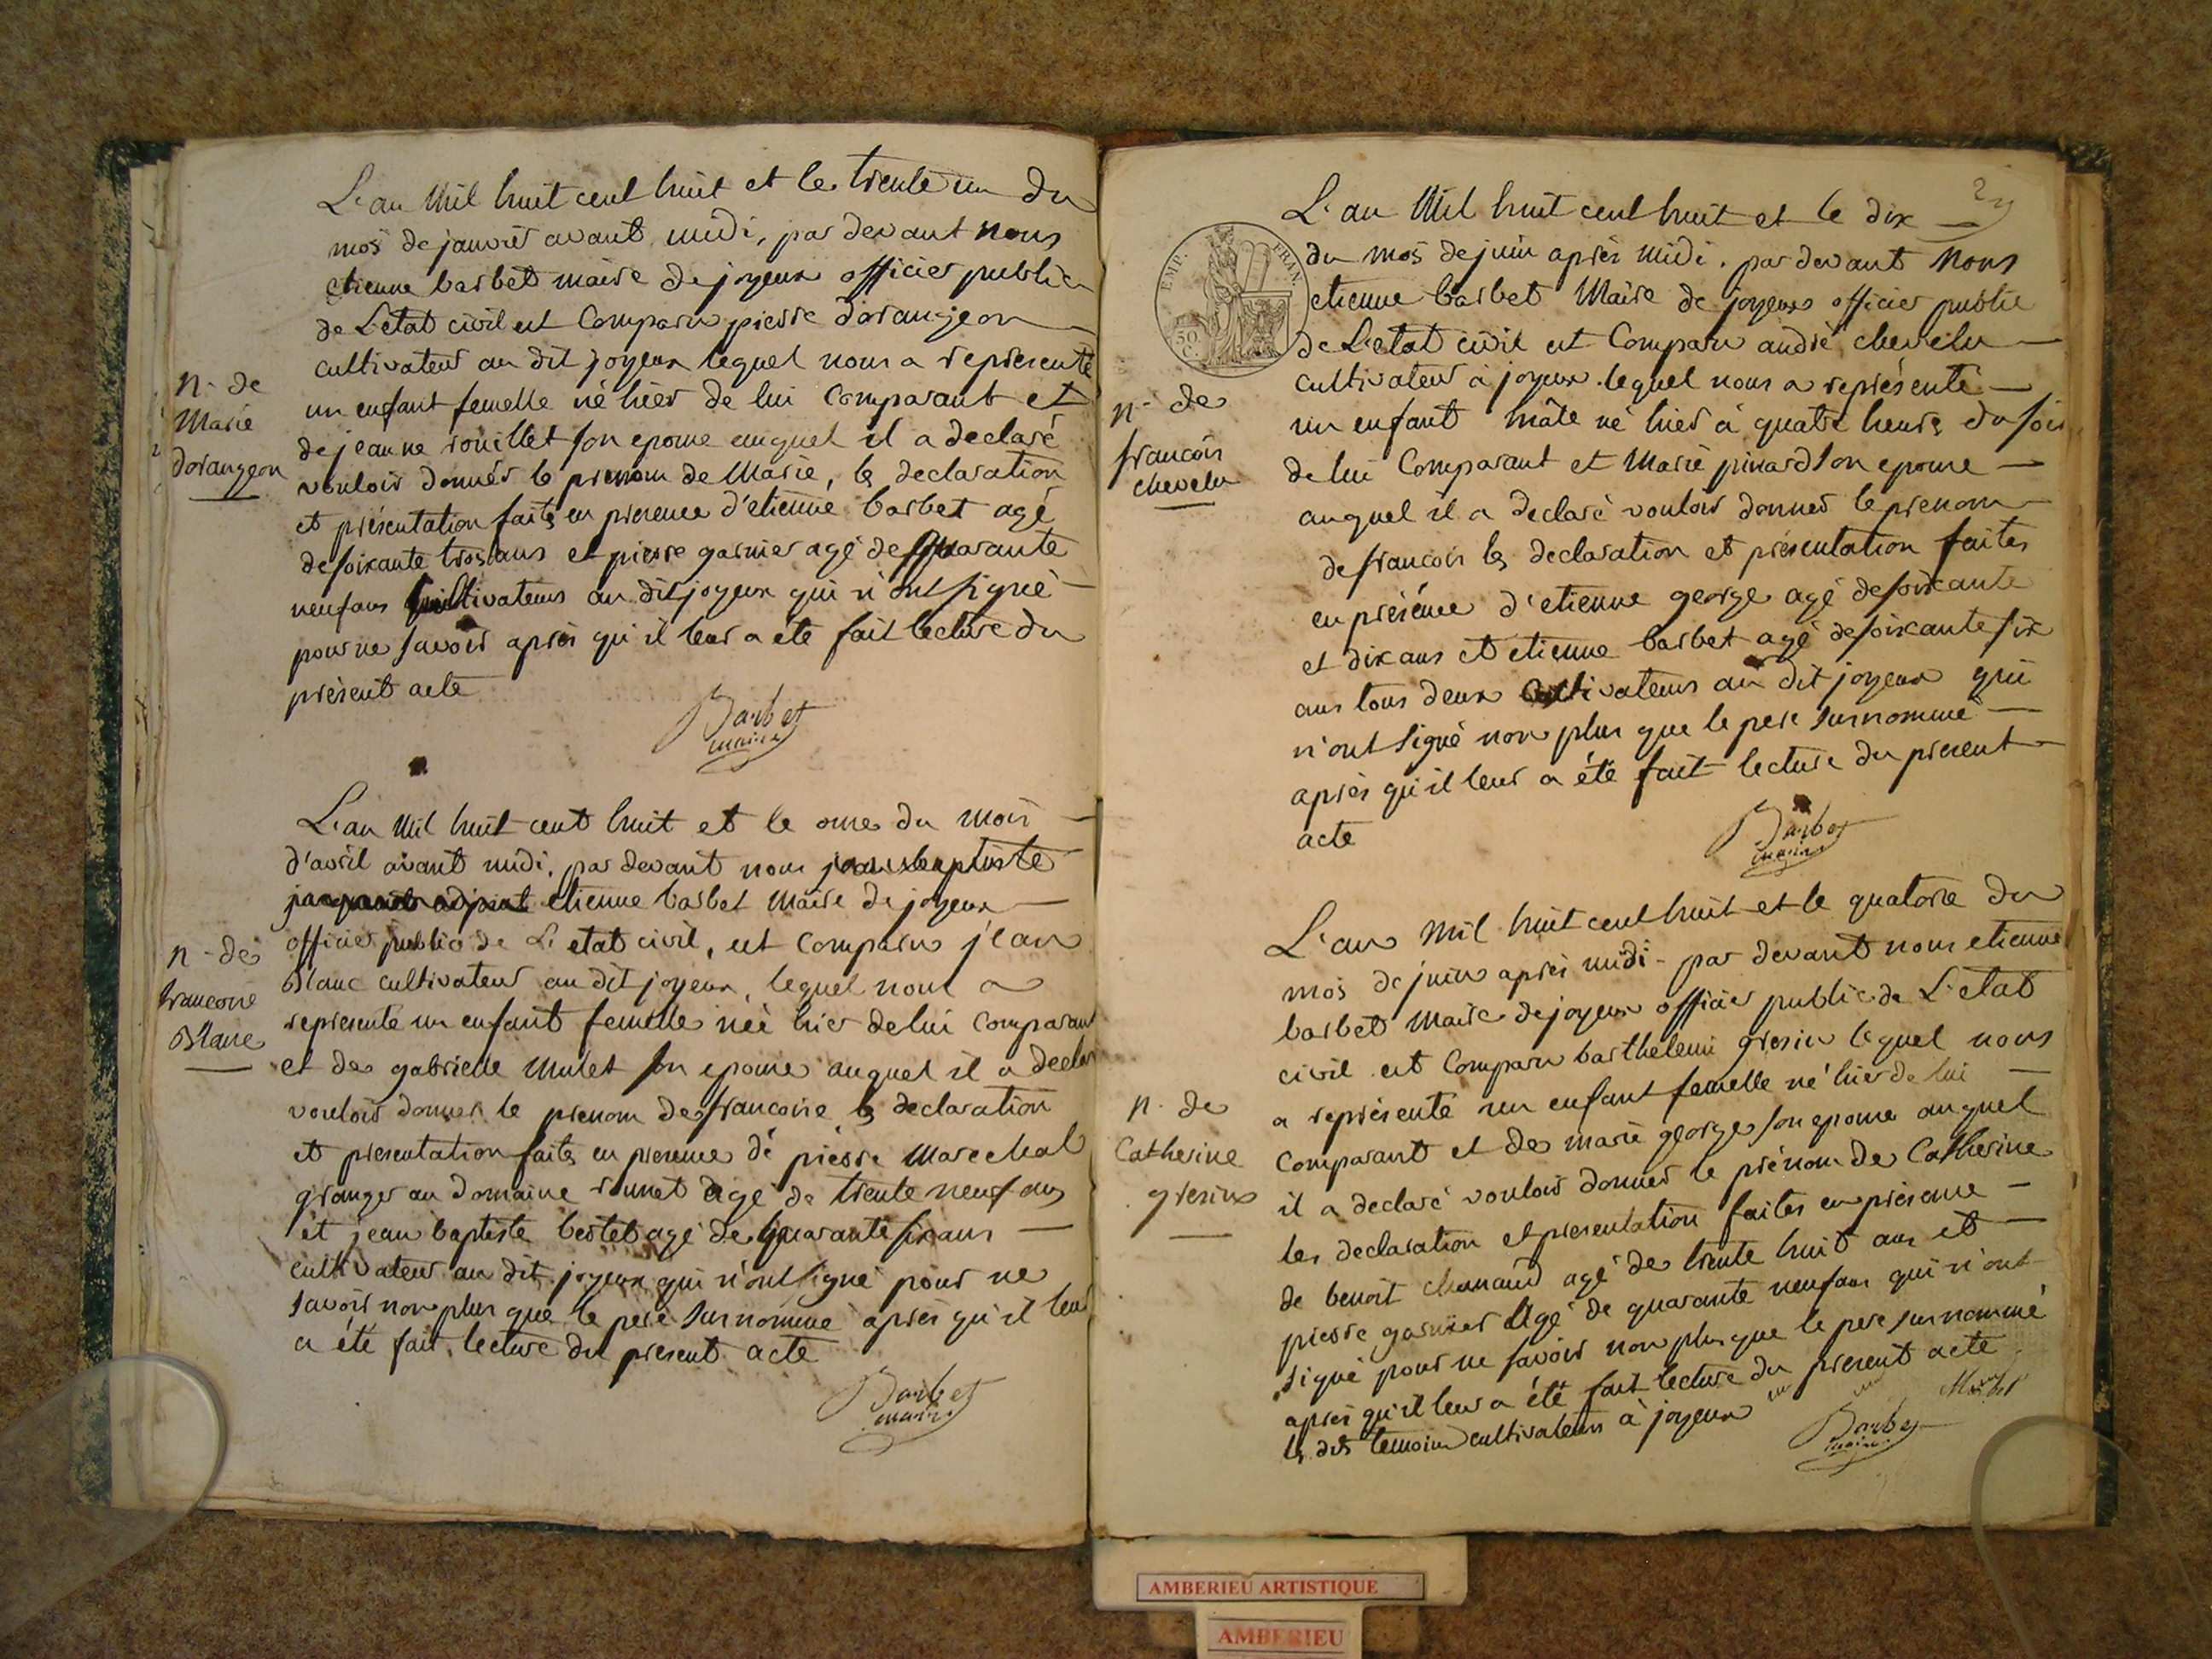 L'an Mil huit cent huit et le trente un du
mos de janvier avant midi, par devant nous
etienne barbet maire de joyeux officier public
de L'etat civil est Comparu pierre dorangeon
cultivateur au dit joyeux lequel nous a representé
n. de
Marie
dorangeon
un enfant femelle né hier de lui Comparant et
de jeanne rouillet son epouse auquel il a declaré
vouloir donner le prenom de Marie, les declaration
et présentation faites en presence d'etienne barbet agé
de soixante trois ans et pierre garnier agé de quarante
neuf ans cultivateurs au dit joyeux qui n'ont signé
pour ne savoir après qu'il leur a été fait lecture du
présent acte
Barbet
maire
L'an Mil huit cent huit et le onze du mois
d'avril avant midi, par devant nous jean baptiste
adjoint etienne barbet Maire de joyeux
officier public de L'etat civil, est comparu jean
n. de
francoise
Blanc
Blanc cultivateur au dit joyeux, lequel nous a
representé un enfant femelle née hier de lui comparant
et de gabrielle Mulet son epouse auquel il a declaré
vouloir donner le prenom de francoise les declaration
et presentation faites en presence de pierre Marechal
granger au domaine agé de trente neuf ans
et jean baptiste bertet agé de quarante six ans
cultivateur au dit joyeux qui n'ont signé pour ne
savoir non plus que le pere surnommé après qu'il leur
a été fait lecture du present acte
Barbet
maire
L'an Mil huit cent huit et le dix
du mos de juin après midi, par devant Nous
EMP. FRAN.
50 C.
etienne barbet Maire de joyeux officier public
de L'etat civil est Comparu andré chevelu
cultivateur à joyeux lequel nous a représenté
n. de
francois
chevelu
un enfant mâle né hier à quatre heures du soir
de lui Comparant et Marie pinard son epouse
auquel il a declaré vouloir donner le prenom
de francois les declaration et présentation faites
en présence d'etienne george agé de soixante
et dix ans et etienne barbet agé de soixante six
ans tous deux cultivateurs au dit joyeux qui
n'ont signé non plus que le pere surnommé
après qu'il leur a été fait lecture du present
acte
Barbet
maire
L'an Mil huit cent huit et le quatorze du
mos de juin après midi par devant nous etienne
barbet Maire de joyeux officier public de L'etat
civil est Comparu barthelemi gresin lequel nous
n. de
Catherine
gresin
a représenté un enfant femelle né hier de lui
Comparant et de marie george son epouse auquel
il a declaré vouloir donner le prénom de Catherine
les declaration et presentation faites en présence
de benoit chanaud agé de trente huit ans et
pierre garnier agé de quarante neuf ans qui n'ont
signé pour ne savoir non plus que le pere surnommé
après qu'il leur a été fait lecture du present acte
les dits temoins cultivateurs à joyeux
Barbet
maire
AMBERIEU ARTISTIQUE
AMBERIEU